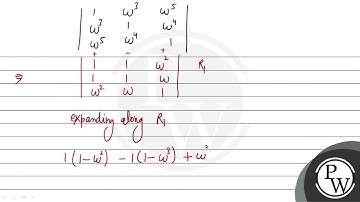 | 1 ω³ ω⁵ |
| ω³ 1 ω⁴ |
| ω⁵ ω⁴ 1 |
+ - +
| 1 1 ω² | R₁
⇒ | 1 1 ω |
| ω² ω 1 |
expanding along R₁
1(1-ω²) -1(1-ω³) + ω²
P
W